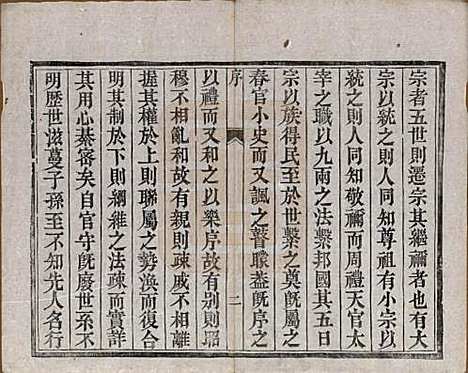 宗者五世則遷宗其繼禰者也有大
宗以統之則人同知尊祖有小宗以
統之則人同知敬禰而周禮天官太
宰之職以九兩之法繫邦國其五曰
宗以族得民至於世繫之奠既屬之
春官小史而又諷之瞽矇蓋既序之
序
二
以禮而又和之以樂序故有別則昭
穆不相亂和故有親則疎戚不相離
握其權於上則聯屬之勢渙而復合
明其制於下則綱維之法疎而實詳
其用心綦密矣自官守既廢世系不
明歷世滋蔓子孫至不知先人名行